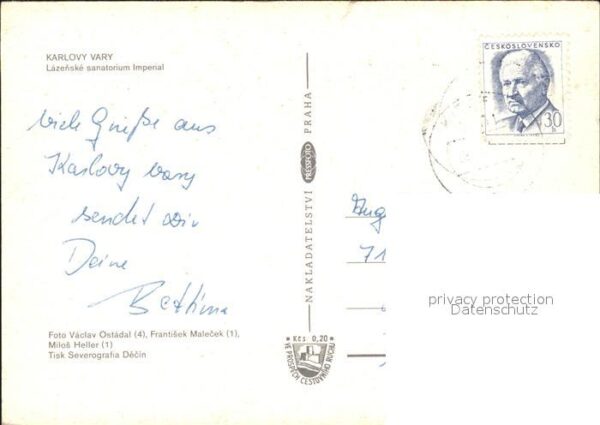 KARLOVY VARY
Lázeňské sanatorium Imperial
ČESKOSLOVENSKO
30
viele Grüße aus
Karlovy vary
sendet Dir
Deine
Bettina
NAKLADATELSTVÍ PRESSFOTO PRAHA
71
privacy protection
Datenschutz
Foto Václav Ostádal (4), František Maleček (1),
Miloš Heller (1)
Tisk Severografia Děčín
Kčs 0,20
VE PROSPĚCH CESTOVNÍHO RUCHU